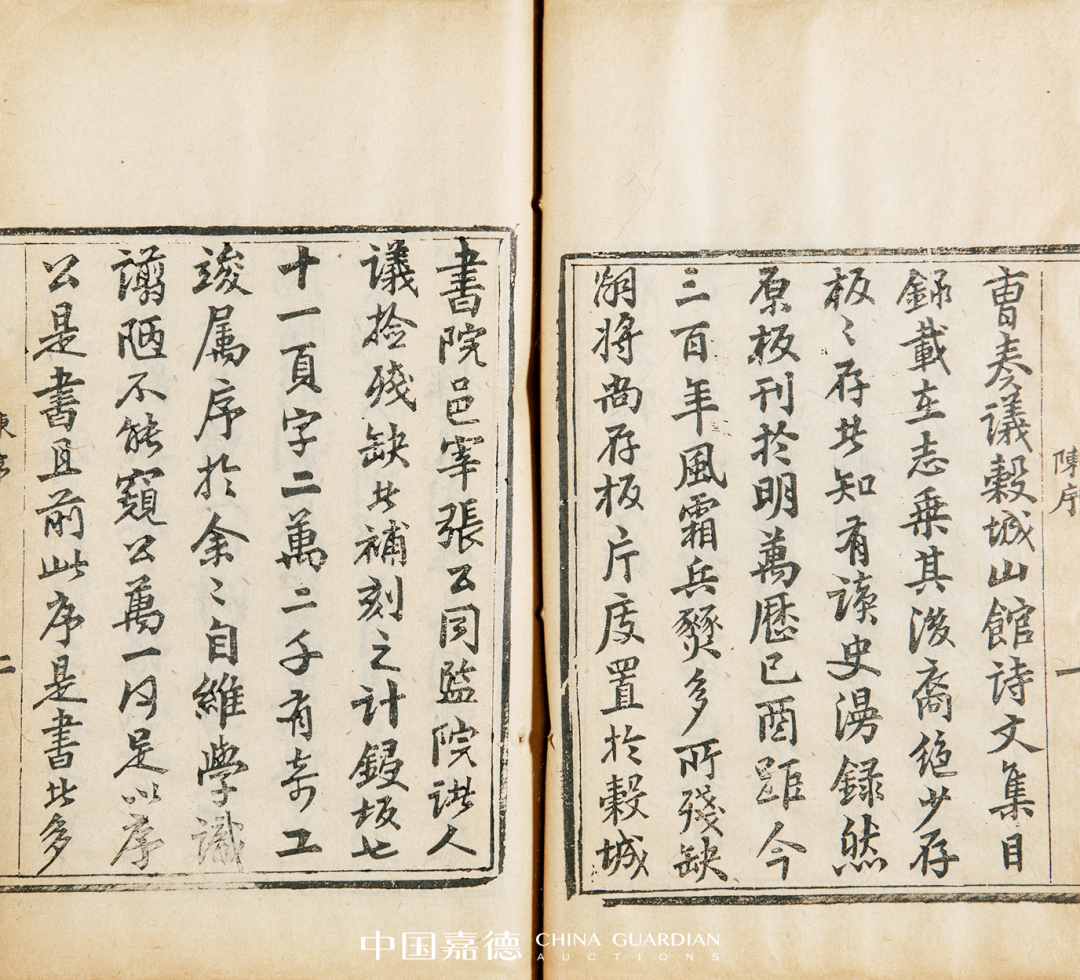 曺奏議穀城山館诗文集目
錄載在志乗其後裔絶少存
板〻存者知有讀史漫録然
原板刊於明萬歷已酉距今
三百年風霜兵燹多所殘缺
嗣將尚存板片庋置於穀城
陳序
一
書院邑宰張公同監院諸人
議捡殘缺者補刻之計鋟坂七
十一頁字二萬二千有奇工
竣属序於余〻自維學識
譾陋不能窺公萬一何足以序
公是書且前此序是書者多
二
中国嘉德 CHINA GUARDIAN
AUCTIONS